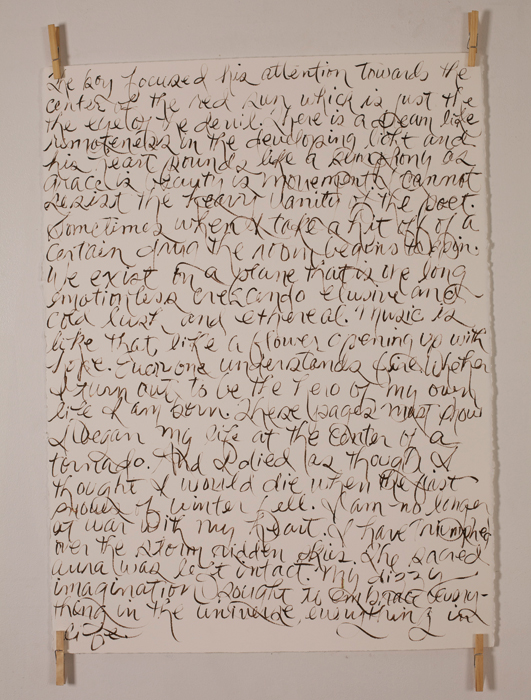 The boy focused his attention towards the
center of the red sun which is just the
the eye of the devil. There is a Dream like
remoteness in the developing light and
his heart pounds like a symphony as
grace is beauty is movement. I cannot
resist the heavy vanity of the poet.
Sometimes when I take a hit off of a
certain drug the room begins to spin.
We exist on a plane that is one long
emotionless crescendo elusive and
cold lust and ethereal. Music is
like that like a flower opening up with
life. Everyone understands fire. Whether
I turn out to be the hero of my own
life I am born. These pages must show
I began my life at the center of a
tornado. And I died as though I
thought I would die when the last
snows of winter fell. I am no longer
at war with my heart. I have triumphed
over the storm ridden skies. The sacred
was left intact. My dizzy
imagination sought to embrace every-
thing in the universe, everything in
life.